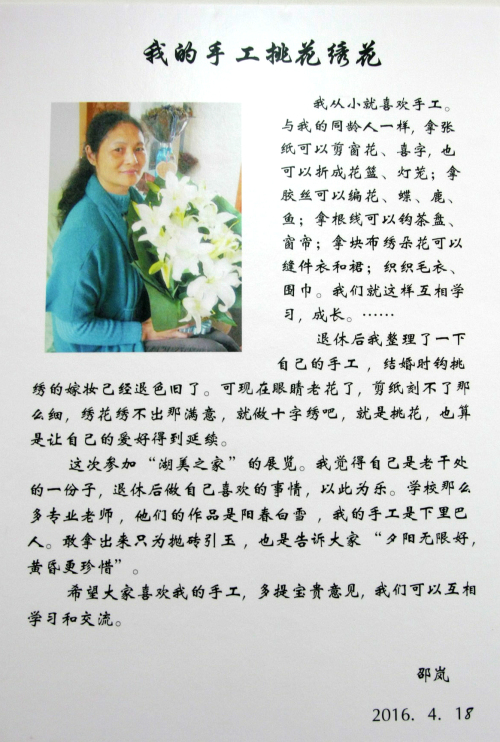 我的手工挑花绣花
我从小就喜欢手工。
与我的同龄人一样，拿张
纸可以剪窗花、喜字，也
可以折成花篮、灯笼；拿
胶丝可以编花、蝶、鹿、
鱼；拿根线可以钩茶盘、
窗帘；拿块布绣朵花可以
缝件衣和裙；织织毛衣、
围巾。我们就这样互相学
习，成长。……
退休后我整理了一下
自己的手工，结婚时钩挑
绣的嫁妆已经退色旧了。可现在眼睛老花了，剪纸刻不了那
么细，绣花绣不出那满意，就做十字绣吧，就是挑花，也算
是让自己的爱好得到延续。
这次参加“湖美之家”的展览。我觉得自己是老干处
的一份子，退休后做自己喜欢的事情，以此为乐。学校那么
多专业老师，他们的作品是阳春白雪，我的手工是下里巴
人。敢拿出来只为抛砖引玉，也是告诉大家“夕阳无限好，
黄昏更珍惜”。
希望大家喜欢我的手工，多提宝贵意见，我们可以互相
学习和交流。
邵岚
2016. 4. 18